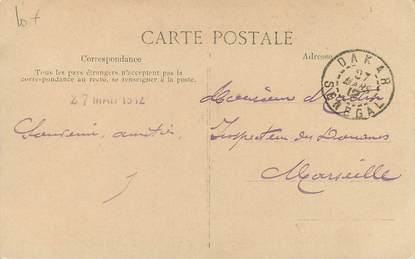 CARTE POSTALE
Correspondance
Adresse
Tous les pays étrangers n'acceptent pas la
correspondance au recto, se renseigner à la poste.
DAKAR
SÉNÉGAL
27 MAR 1912
Monsieur
Souvenir, amitié,
Inspecteur des Douanes
Marseille